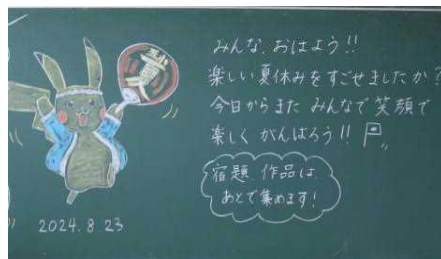 みんな、おはよう!!
楽しい夏休みをすごせましたか?
今日からまた みんなで笑顔で
楽しく がんばろう!!
宿題、作品は、
あとで集めます!
2024.8.23